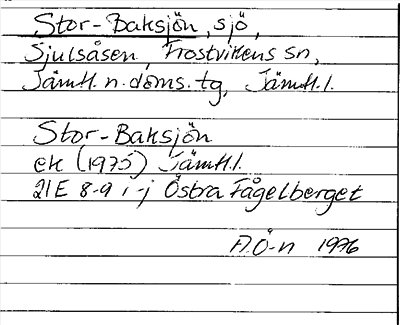 Stor-Baksjön, sjö,
Sjulsåsen, Frostvikens sn,
Jämtl. n. doms. tg, Jämtl. l.
Stor-Baksjön
ek (1975) Jämtl. l.
21E 8-9 i-j Östra Fågelberget
A.Ö-n 1976